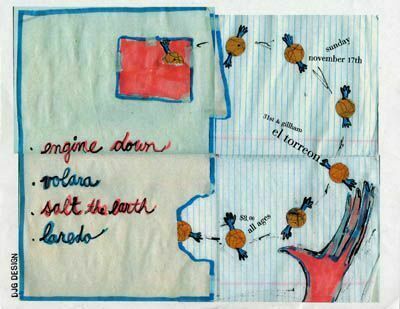 sunday
november 17th
31st & gillham
el torreon
· engine down
· volara
· salt the earth
· laredo
$8.00
all ages
DJG DESIGN